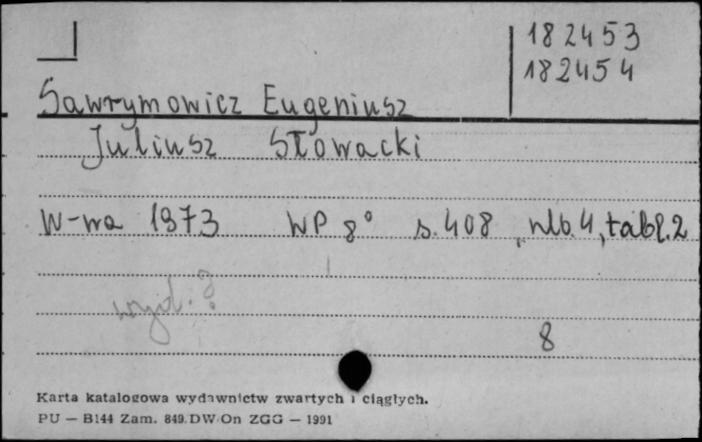 182453
182454
Sawrymowicz Eugeniusz
Juliusz Słowacki
W-wa 1973 WP 8° s. 408, nlb. 4, tabl. 2
wyd. ?
8
Karta katalogowa wydawnictw zwartych i ciągłych.
PU — B144 Zam. 849. DW/On ZGG — 1991